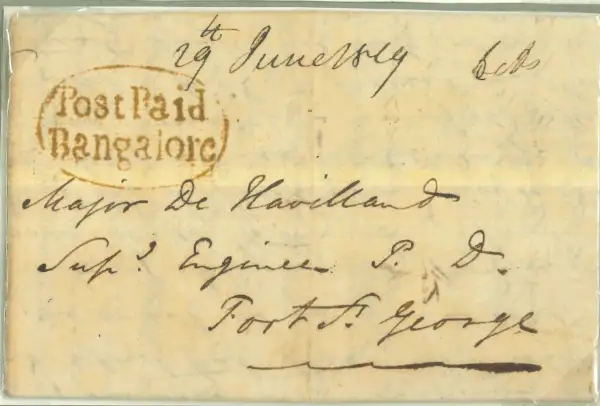 29th June 1819
Post Paid
Bangalore
Major De Havilland
Supt. Engineer P. D.
Fort St. George